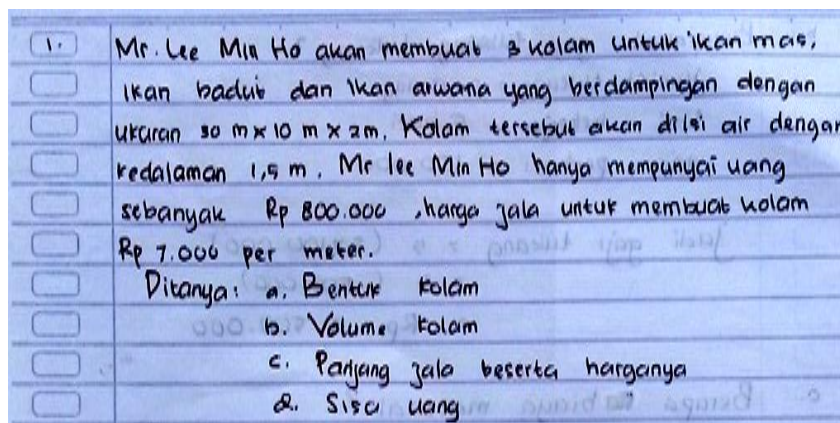 1. Mr. Lee Min Ho akan membuat 3 kolam untuk ikan mas,
ikan badut dan ikan arwana yang berdampingan dengan
ukuran 30 m x 10 m x 2m. Kolam tersebut akan diisi air dengan
kedalaman 1,5 m. Mr lee Min Ho hanya mempunyai uang
sebanyak Rp 800.000 , harga jala untuk membuat kolam
Rp 7.000 per meter.
Ditanya : a. Bentuk kolam
b. Volume kolam
c. Panjang jala beserta harganya
d. Sisa uang